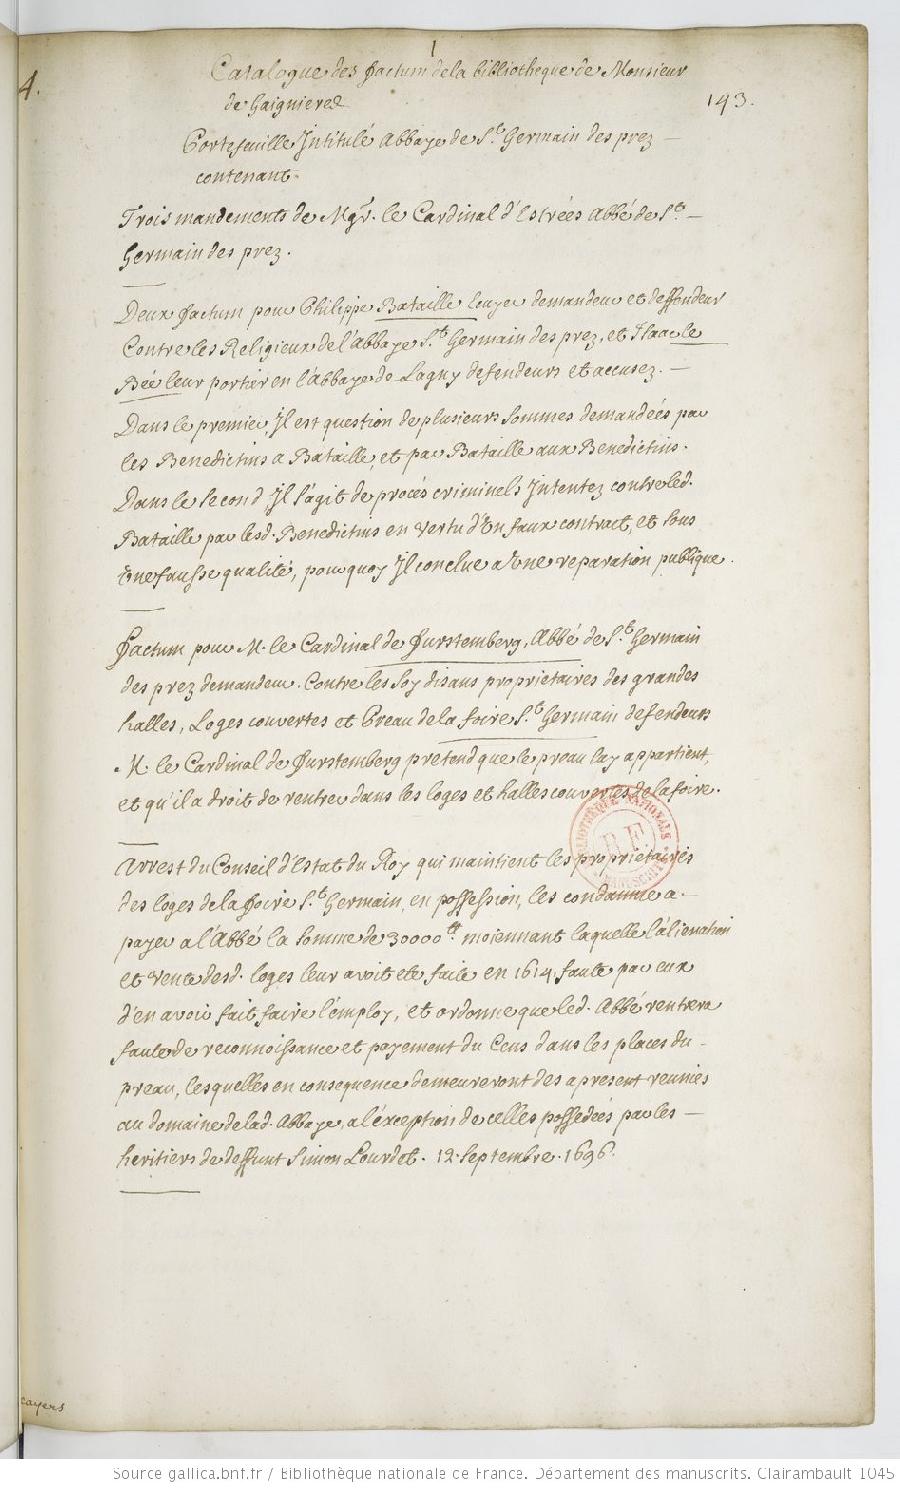 1
4.
Catalogue des factum de la bibliotheque de Monsieur
de Gaignieres
143.
Portefeuille Intitulé Abbaye de St. Germain des prez —
contenant.
Trois mandements de Mgr. le Cardinal d'Estrées Abbé de St. —
Germain des prez.
Deux factum pour Philippe Bataille Ecuyer demandeur et deffendeur
Contre les Religieux de l'abbaye St. Germain des prez, et Isaac le
Bée leur portier en l'abbaye de Lagny defendeurs et accusez. —
Dans le premier, Il est question de plusieurs sommes demandées par
les Benedictins a Bataille, et par Bataille aux Benedictins.
Dans le second, Il s'agit de procés criminels Intentez contre led.
Bataille par lesd. Benedictins en vertu d'Un faux contract, et sous
Une fausse qualité, pourquoy Il conclue a Une reparation publique.
Factum pour M. le Cardinal de Furstemberg, Abbé de St. Germain
des prez demandeur. Contre les soy disans proprietaires des grandes
halles, Loges couvertes et Preau de la foire St. Germain defendeurs
M. le Cardinal de Furstemberg pretend que le preau luy appartient,
et qu'il a droit de rentrer dans les loges et halles couvertes de la foire.
BIBLIOTHEQUE NATIONALE
RF
MANUSCRITS
Arrest du Conseil d'Estat du Roy qui maintient les proprietaires
des loges de la foire St. Germain, en possession, les condamne a.
payer a l'Abbé la somme de 30000tt. moiennant laquelle l'alienation
et vente desd. loges leur avoit eté faite en 1614 faute par eux
d'en avoir fait faire l'employ, et ordonne que led. Abbé rentrera
faute de reconnoissance et payement du Cens dans les places du -
preau, lesquelles en consequence demeureront des apresent reunies
au domaine de lad. Abbaye a l'exception de celles possedées par les —
heritiers de deffunt Simon Lourdet. 12. Septembre. 1696.
cayers
Source gallica.bnf.fr / Bibliothèque nationale de France. Département des manuscrits. Clairambault 1045